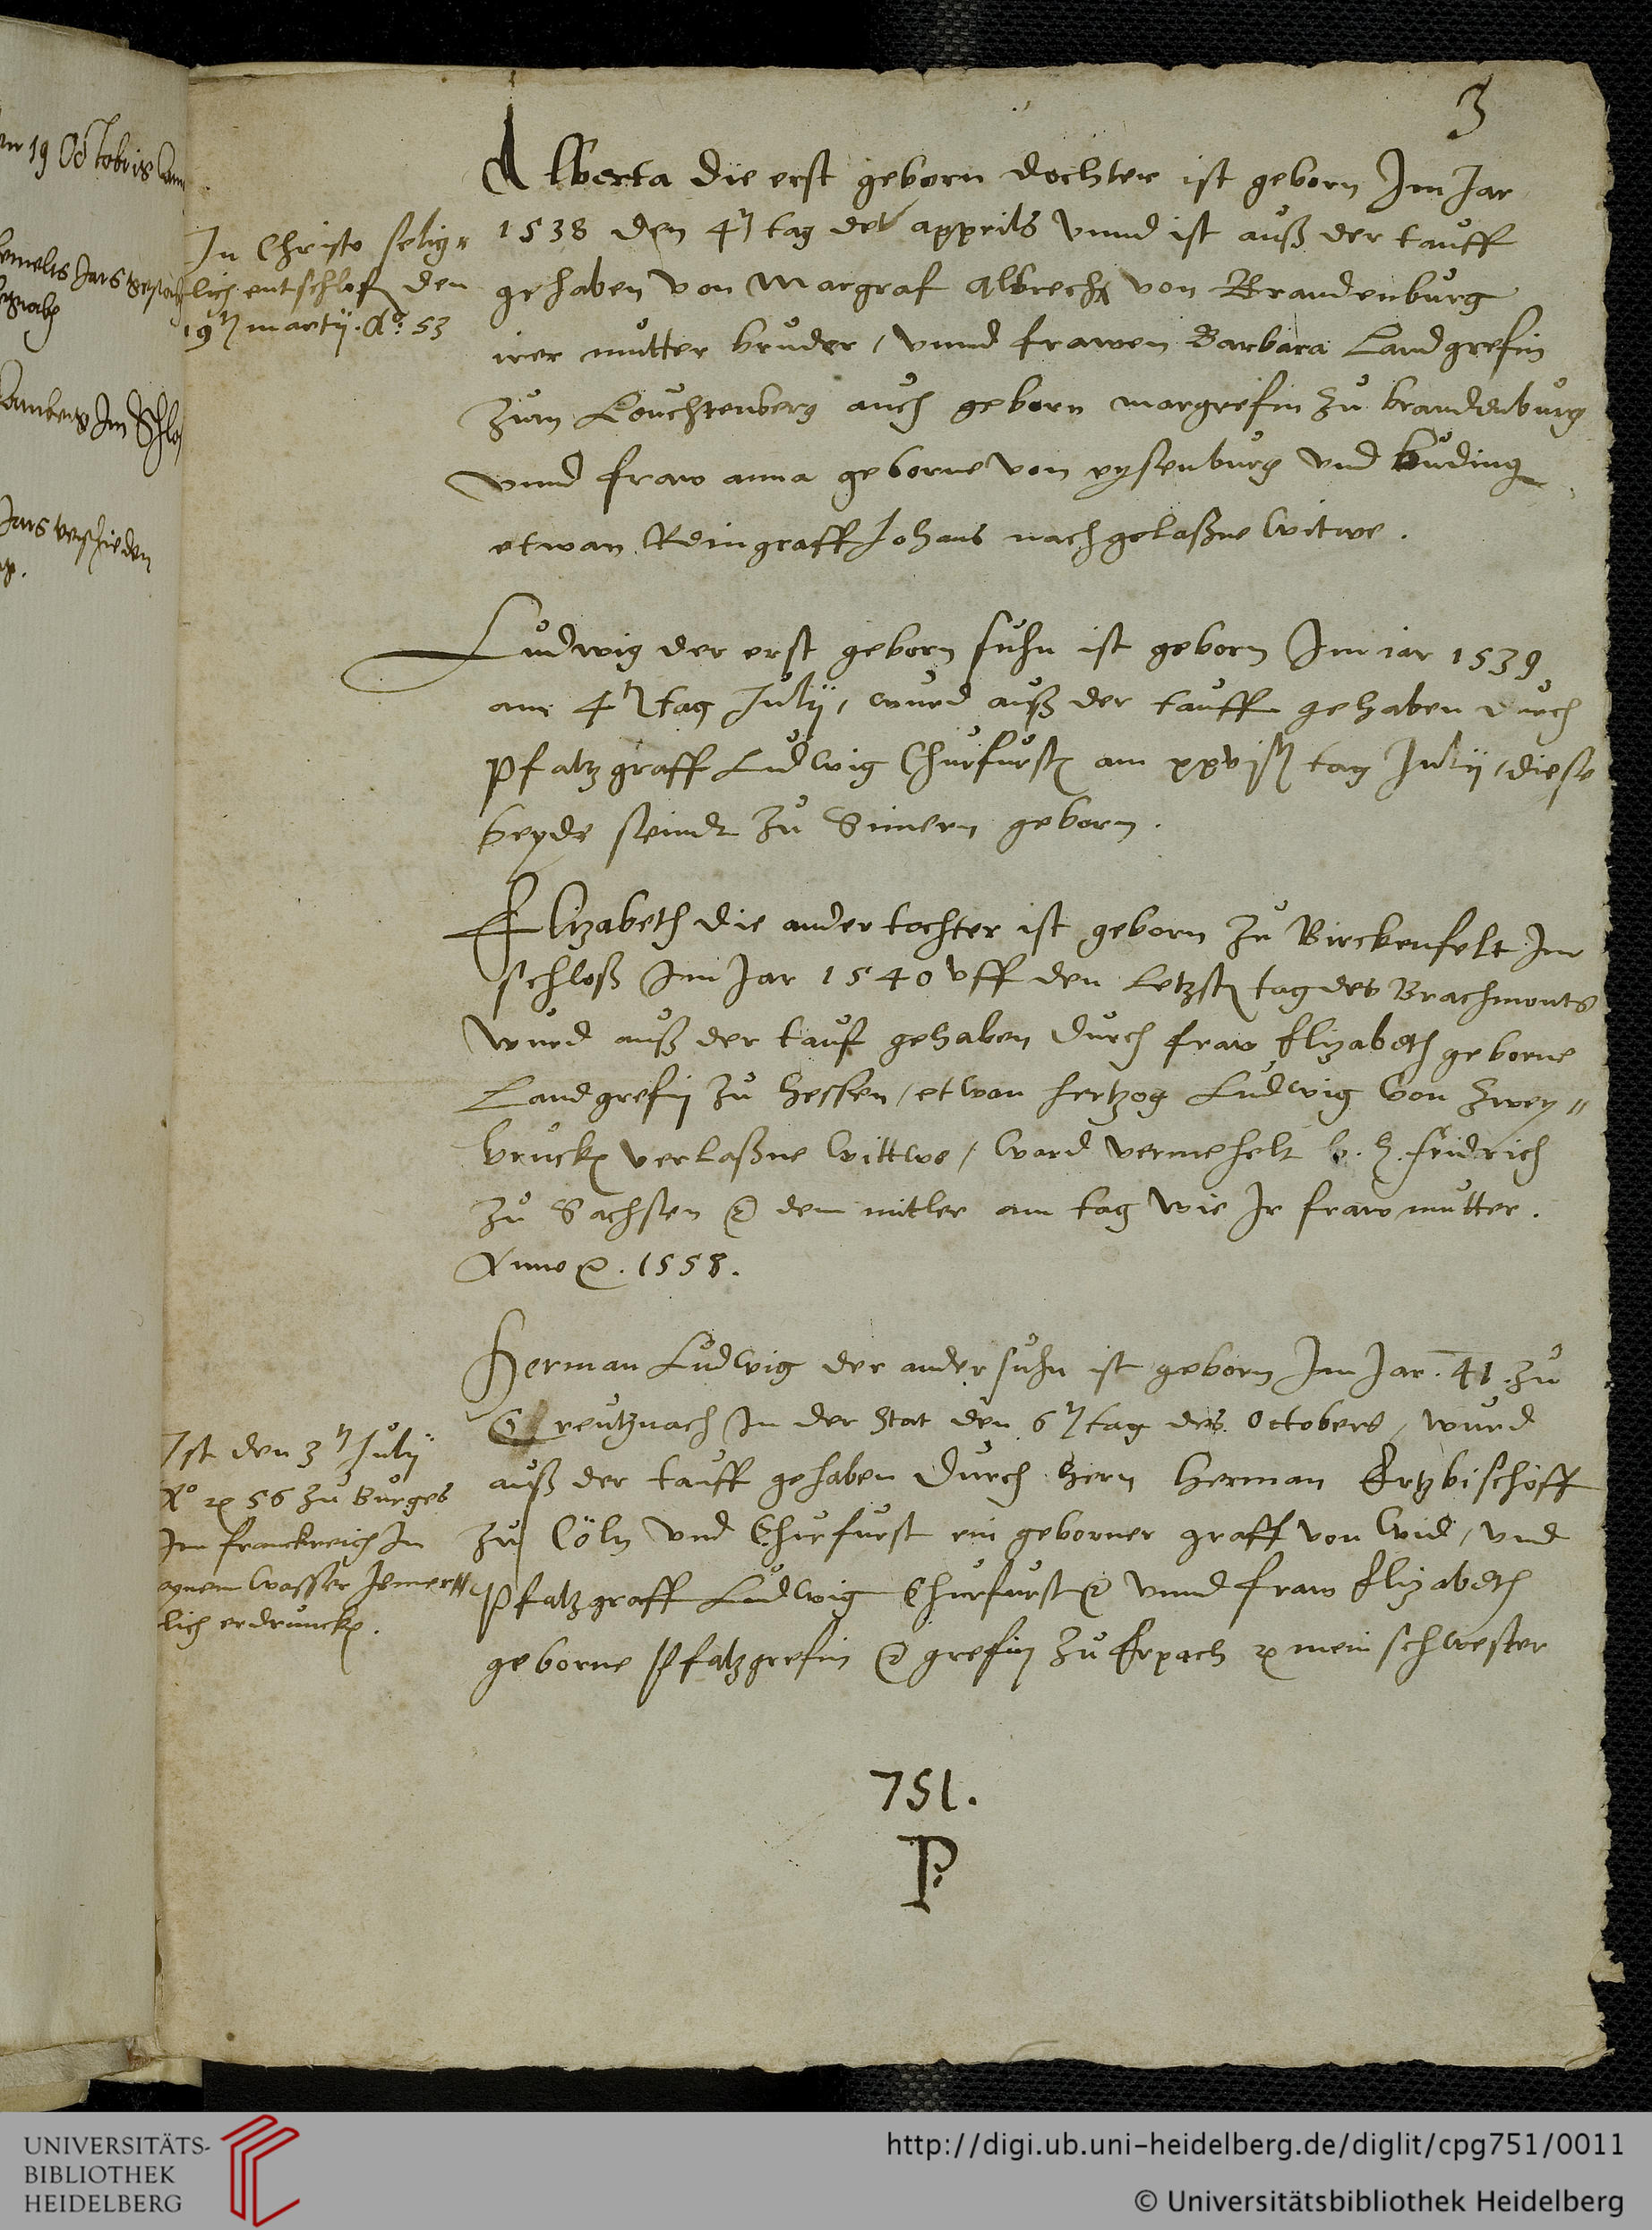 3
Alberta die erst geborn dochter ist geborn Im Jar
1538 den 4ͭ tag des apprils vnnd ist auß der tauff
gehaben von Margraf Albrecht von Brandenburg
irer mutter bruder / vnnd frawen Barbara Landgrefin
zum Leuchtenberg auch geborn margrefin zu brandenburg
vnnd fraw anna geborne von eysenburg vnd buding
etwan Reingraff Johans nachgelaßne witwe .
In Christo selig=
lich entschlofen den
19ͭ martij . Aº. 53
Ludwig der erst geborn suhn ist geborn Im iar 1539
am 4 tag Julij / wurd auß der tauff gehaben durch
Pfaltzgraff Ludwig Churfurst am xxvjst tag Julij / diese
beyde seindt zu Simern geborn .
Elizabeth die ander tochter ist geborn zu Birckenfelt Im
schloß Im Jar 1540 vff den letzst tag des Brachmonts
wurd auß der tauf gehaben durch fraw Elizabeth geborne
Landgrefin zu Hessen / etwan Hertzog Ludwig von Zwey=
brucken verlaßne wittwe / ward vermehelt h. fridrich
zu Sachsen dem mitler am tag wie Ir fraw mutter .
Anno . 1558 .
Herman Ludwig der ander suhn ist geborn Im Jar . 41 . zu
Creutznach In der Stat den 6 tag des Octobers / wurd
auß der tauff gehaben durch hern Herman Ertzbischoff
zu Cöln vnd Churfurst ein geborner graff von Wid / vnd
Pfaltzgraff Ludwig Churfurst vnnd fraw Elizabeth
geborne Pfaltzgrefin grefin zu Erpach mein schwester
Ist den 3 Julij
Aº 56 zu Burges
Im franckreich In
aynem wasser Jemer=
lich erdruncken .
751.
P.
UNIVERSITÄTS-
BIBLIOTHEK
HEIDELBERG
http://digi.ub.uni-heidelberg.de/diglit/cpg751/0011
© Universitätsbibliothek Heidelberg